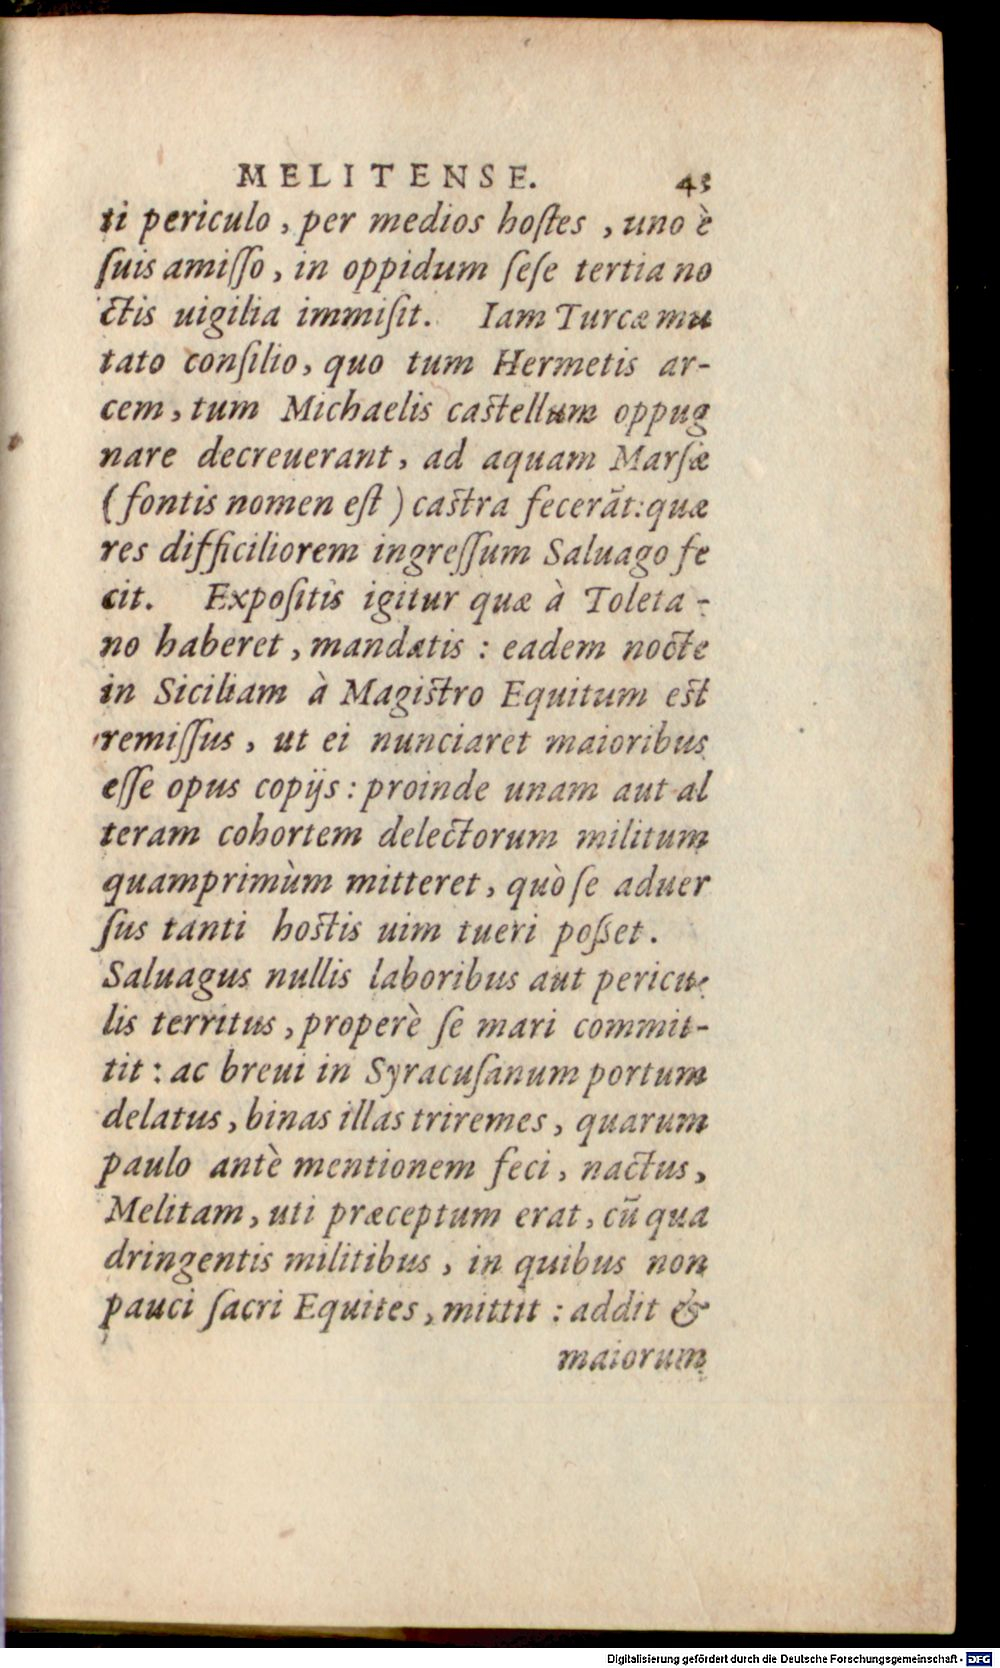 MELITENSE. 43
ti periculo, per medios hoſtes, uno è
ſuis amiſſo, in oppidum ſeſe tertia no
ctis uigilia immiſit. Iam Turcæ mu
tato conſilio, quo tum Hermetis ar-
cem, tum Michaelis caſtellum oppug
nare decreuerant, ad aquam Marſæ
(fontis nomen eſt) caſtra fecerāt: quæ
res difficiliorem ingreſſum Saluago fe
cit. Expoſitis igitur quæ à Toleta-
no haberet, mandatis: eadem nocte
in Siciliam à Magiſtro Equitum eſt
remiſſus, ut ei nunciaret maioribus
eſſe opus copijs: proinde unam aut al
teram cohortem delectorum militum
quamprimùm mitteret, quò ſe aduer
ſus tanti hoſtis uim tueri poſſet.
Saluagus nullis laboribus aut pericu-
lis territus, properè ſe mari commit-
tit: ac breui in Syracuſanum portum
delatus, binas illas triremes, quarum
paulo antè mentionem feci, nactus,
Melitam, uti præceptum erat, cū qua
dringentis militibus, in quibus non
pauci ſacri Equites, mittit: addit &
maiorum
Digitalisierung gefördert durch die Deutsche Forschungsgemeinschaft - DFG